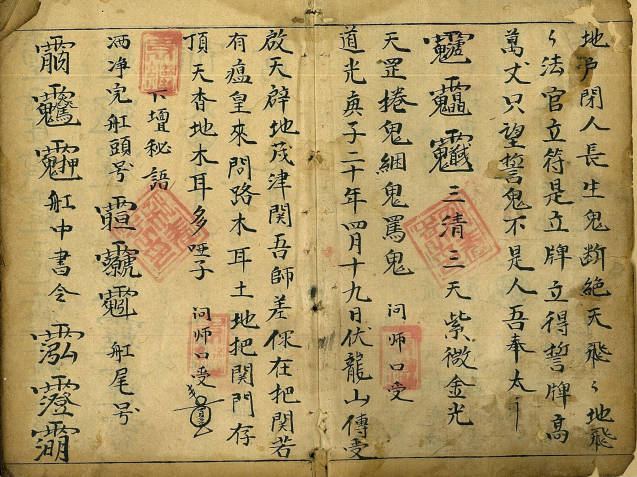 地戸閉人長生鬼斷絕天飛〻地飛
〻法官立符是立牌立得誓牌高
萬丈只望誓鬼不是人吾奉太
三清三天紫微金光
天罡捲鬼綑鬼罵鬼 问师口受
道光庚子二十年四月十九日伏龍山傳受
啟天辟地茂津関吾師差保在把関若
有瘟皇來問路木耳土地把関門存
頂天沓地木耳多哑子 问师口受
下壇秘語
洒净完舡頭号 舡尾号
舡中書令